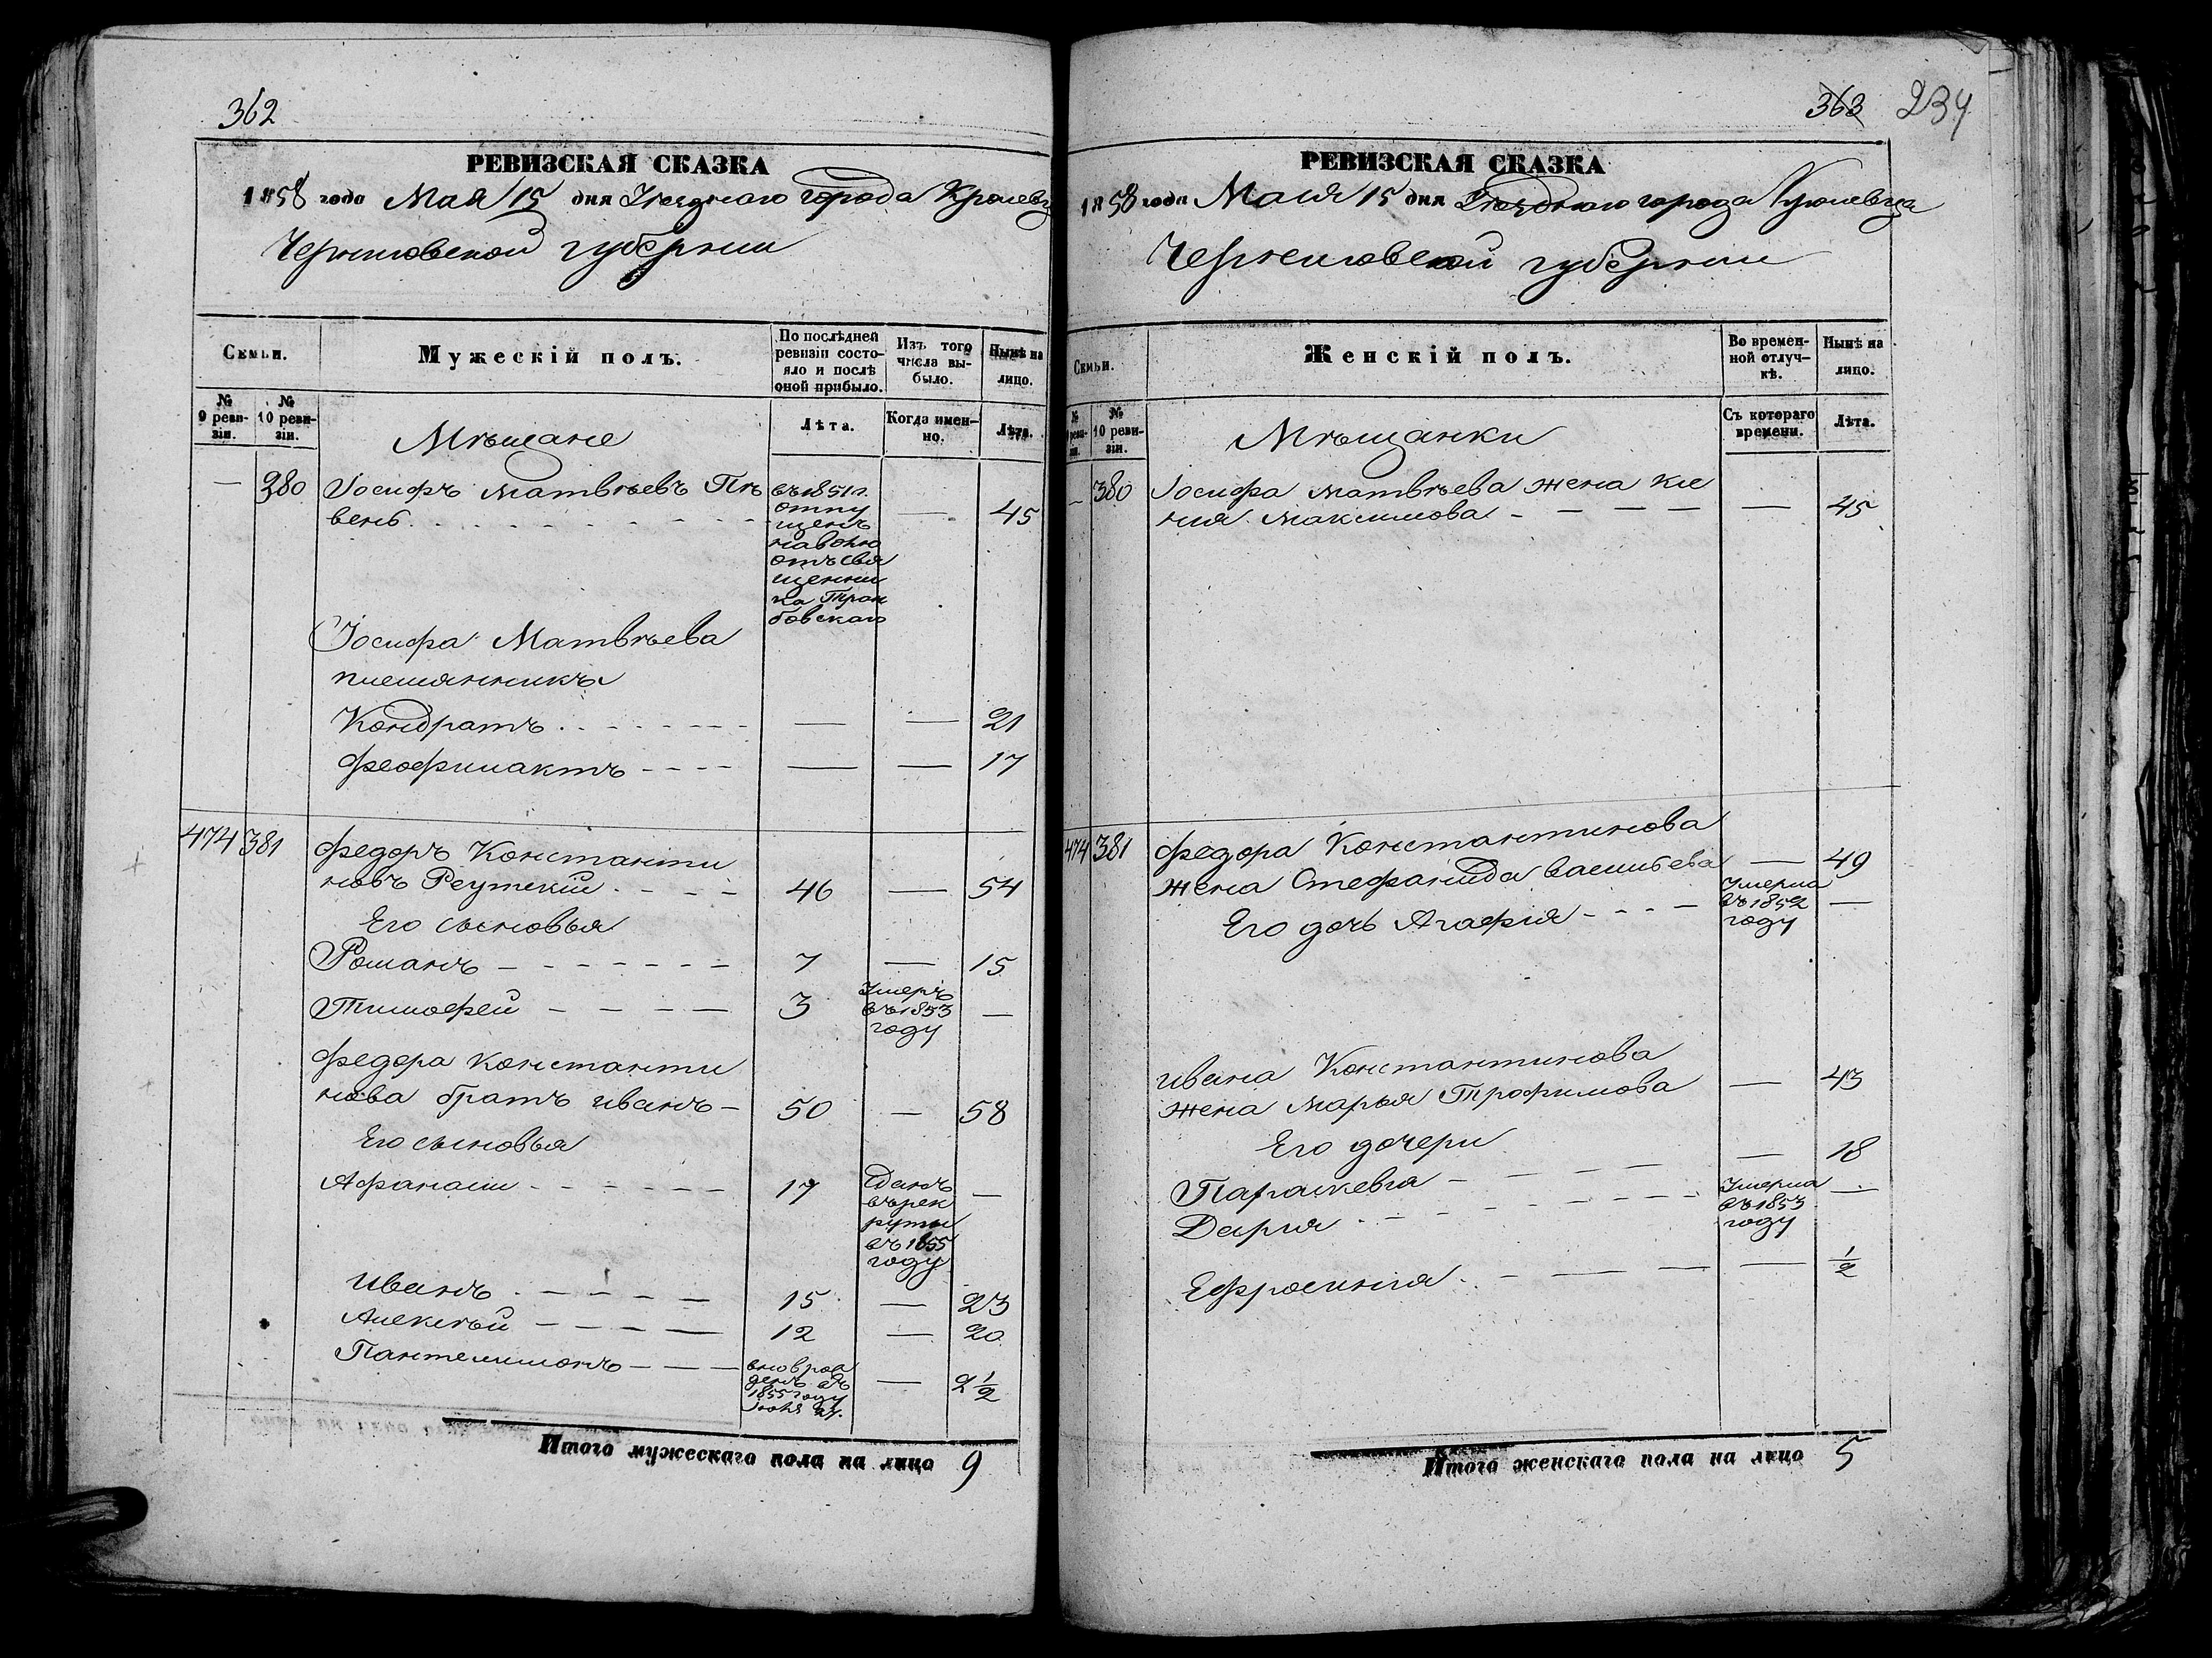 362
РЕВИЗСКАЯ СКАЗКА
1858 года Мая 15 дня Уезднаго города Кролевц
Черниговской губернии
Семьи.
Мужескій полъ.
По послѣдней ревизіи состо-
яло и послѣ
оной прибыло.
Изъ того
числа вы-
было.
Нынѣ на
лицо.
№
9 реви-
зіи.
№
10 реви-
зіи.
Мѣщане
Лѣта.
Когда имен-
но.
Лѣта.
— 380 Іосифъ Матвѣевъ Пѣ
вень — 45
въ 1851 г.
отпу
щенъ
на волю
отъ свя
щенни
ка
Іосифа Матвѣева
племянникъ
Кондратъ — — 21
Феофилактъ — — 17
474 381 Федоръ Константи
новъ Реутскій 46 — 54
Его сыновья
Романъ 7 — 15
Тимофей 3 Умеръ
въ 1853
году —
Федора Константи
нова братъ Иванъ 50 — 58
Его сыновья
Афанасій 17 Сданъ
въ рек
руты
въ 1855
году —
Иванъ 15 — 23
Алексѣй 12 — 20
Пантелимонъ вновь рож
денъ въ
1855 году
— 2 1/2
Итого мужескаго пола на лицо 9
363 234
РЕВИЗСКАЯ СКАЗКА
1858 года Маія 15 дня Уезднаго города Кролевца
Черниговской губернии
Семьи.
Женскій полъ.
Во времен-
ной отлуч-
кѣ.
Нынѣ на
лицо.
№
9 реви-
зіи.
№
10 реви-
зіи.
Мѣщанки
Съ котораго
времени.
Лѣта.
— 380 Іосифа Матвѣева жена Кле
ния Максимова — 45
474 381 Федора Константинова
жена Стефанида Васильева — 49
Его дочь Агафия Умерла
въ 1852
году —
Ивана Константинова
жена Марья Трофимова — 43
Его дочери
Параскевия — 18
Дария Умерла
въ 1853
году —
Ефросиния — 1/2
Итого женскаго пола на лицо 5